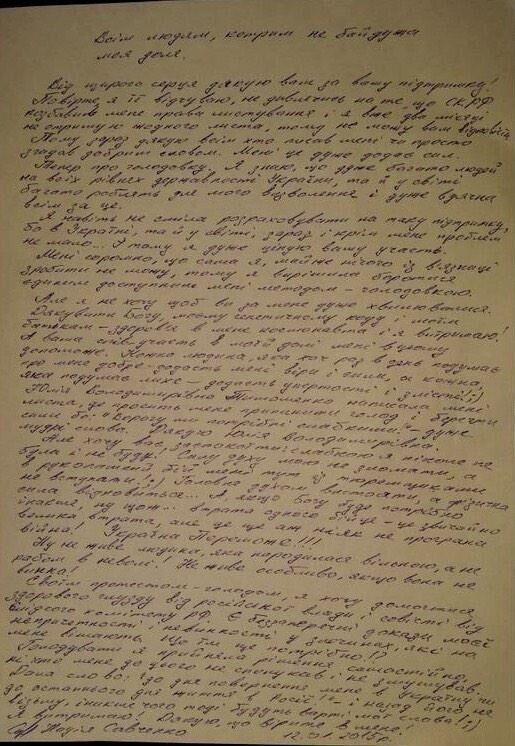 Всім людям, котрим не байдужа
моя доля.
Від щирого серця дякую вам за вашу підтримку!
Повірте, я її відчуваю, не дивлячись на те, що СК РФ
позбавив мене права листування і я вже два місяці
не отримую жодного листа, тому не можу вам відповісти.
Тому зараз дякую всім хто писав мені чи просто
згадав добрим словом. Мені це дуже додає сил.
Тепер про голодовку. Я знаю, що дуже багато людей
на всіх рівнях державності України, та й у світі
багато роблять для мого визволення і дуже вдячна
всім за це.
Я навіть не сміла розраховувати на таку підтримку,
бо в Україні, та й у світі, зараз і крім мене проблем
не мало... І тому я дуже ціную вашу участь.
Мені соромно, що сама я, майже нічого із в'язниці
зробити не можу, тому я вирішила боротися
єдиним доступним мені методом - голодовкою.
Але я не хочу щоб ви за мене дуже хвилювалися.
Дякувати Богу, моєму генетичному коду і моїм
батькам - здоров'я в мене космонавта і я витримаю!
А ваша співучасть в моїй долі мені в цьому
допоможе. Кожна людина, яка хоч раз в день подумає
про мене добре - додасть мені віри і сили, а кожна,
яка подумає лихе - додасть упертості і злості! ;)
Юлія Володимирівна Тимошенко написала мені
листа, де просить мене припинити голод і берегти
сили бо: "Ворогу ми потрібні слабкими!" - дуже
мудрі слова. Дякую Юлія Володимирівна.
Але хочу вас заспокоїти: слабкою я ніколи не
була і не буду! Силу духу мою не зломати, а
в рукопашній бій мені тут із тюремщиками
не вступати! ;) Головне духом вистояти, а фізична
сила відновиться... А якщо Богу буде потрібно
інакше, ну що ж... втрата одного бійця - це звичайно
велика втрата, але це ще аж ніяк не програна
війна! Україна Переможе!!!
Ну не живе людина, яка народилася вільною, а не
рабом в неволі! Не живе особливо, якщо вона не
винна!
Своїм протестом-голодом, я хочу домогтися
здорового глузду від російської влади і совісті від
слідчого комітету РФ. Є беззаперечні докази моєї
непричетності і невинності у злочинах, які на
мене вішають. Що їм ще потрібно?!
Голодувати я прийняла рішення самостійно,
ніхто мене до цього не спонукав і не змушував.
Дала слово: "до дня повернення мене в Україну, чи
до останнього дня життя в Росії!" - і назад його не
візьму, інакше чого тоді будуть варті мої слова! ;)
Я витримаю! Дякую, що вірите в мене!
Надія Савченко 12.01.2015 р.